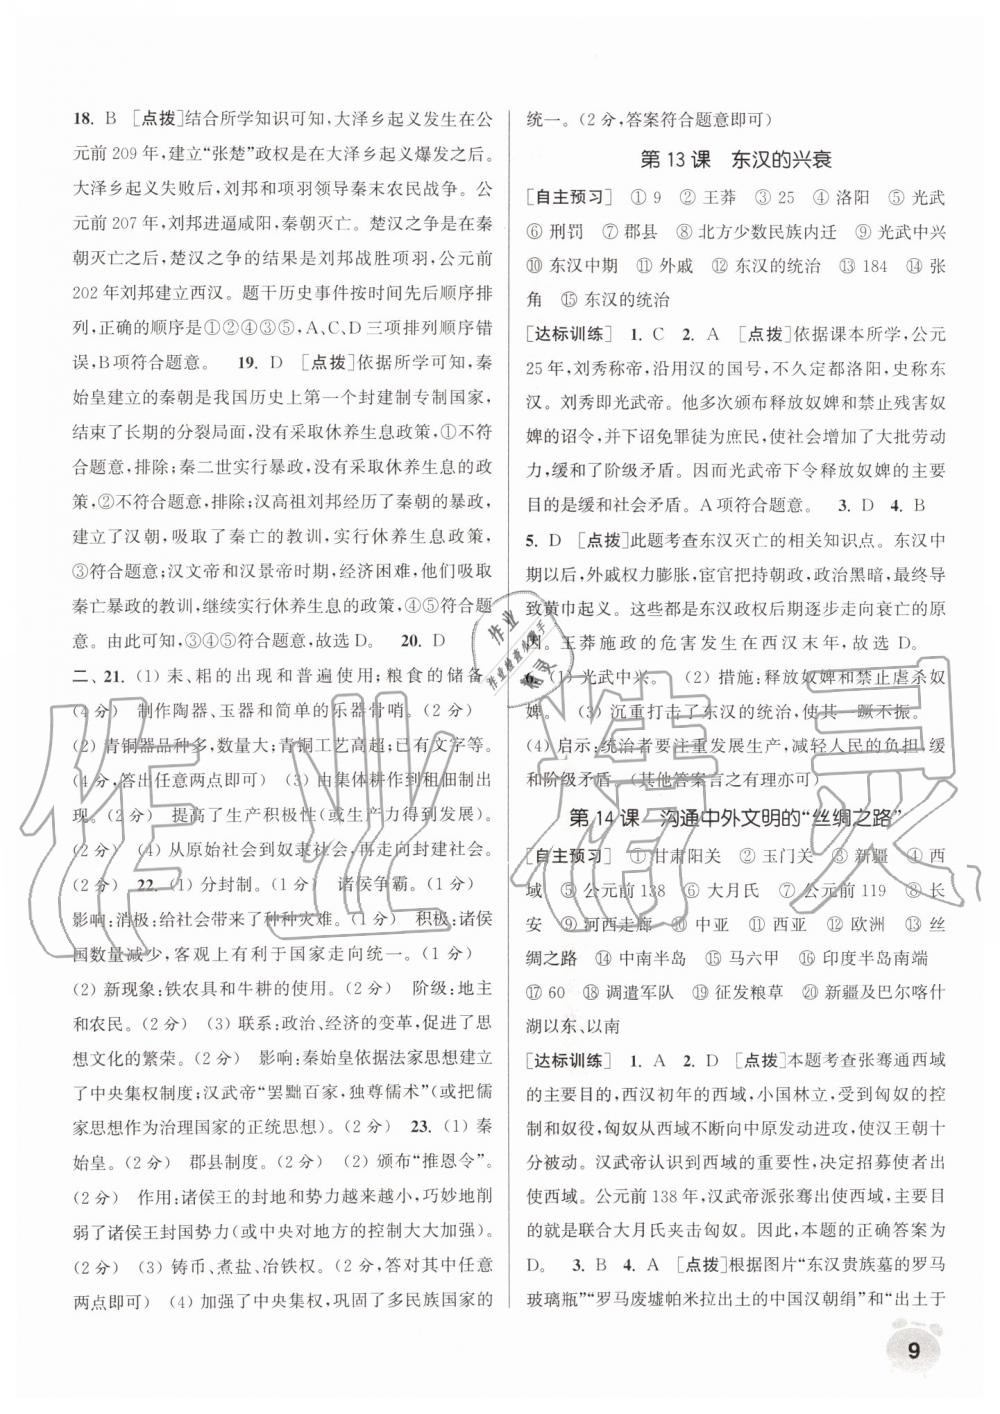 18. B ［点拨］结合所学知识可知，大泽乡起义发生在公
元前 209 年，建立“张楚”政权是大泽乡起义爆发之后。
大泽乡起义失败后，刘邦和项羽领导秦末农民战争。公
元前 207 年，刘邦进逼咸阳，秦朝灭亡。楚汉之争是在秦
朝灭亡之后，楚汉之争的结果是刘邦战胜项羽，公元前
202 年刘邦建立西汉。题干历史事件按时间先后顺序排
列，正确的顺序是①②④③⑤，A、C、D 三项排列顺序错
误，B项符合题意。 19. D ［点拨］依据所学可知，秦
始皇建立的秦朝是我国历史上第一个封建制专制国家，
结束了长期的分裂局面，没有采取休养生息政策，①不符
合题意，排除；秦二世实行暴政，没有采取休养生息的政
策，②不符合题意，排除；汉高祖刘邦经历了秦朝的暴政，
建立了汉朝，吸取秦亡的教训，实行休养生息的政策，
③符合题意；汉文帝和汉景帝时期，经济困难，他们吸取
秦亡暴政的教训，继续实行休养生息的政策，④⑤符合题
意。由此可知，③④⑤符合题意，故选 D。 20. D
二、21. （1）耒、耜的出现和普遍使用；粮食的储备。
（4 分） 制作陶器、玉器和简单的乐器骨哨。（2 分）
（2）青铜器品种多，数量大；青铜工艺高超；已有文字等。
（4 分，答出任意两点即可） （3）由集体耕作到租佃制出
现。（2 分） 提高了生产积极性（或生产力得到发展）。
（2 分） （4）从原始社会到奴隶社会，再走向封建社会。
（2 分） 22. （1）分封制。 诸侯争霸。（2 分）
影响：消极：给社会带来了种种灾难。（2 分） 积极：诸侯
国数量减少，客观上有利于国家走向统一。（2 分）
（2）新现象：铁农具和牛耕的使用。（2 分） 阶级：地主
和农民。（2 分） （3）联系：政治、经济的变革，促进了思
想文化的繁荣。（2 分） 影响：秦始皇依据法家思想建立
了中央集权制度；汉武帝“罢黜百家，独尊儒术”（或把儒
家思想作为治理国家的正统思想）。（2 分） 23. （1）秦
始皇。（2 分） 郡县制度。（2 分） （2）颁布“推恩令”。
（2 分） 作用：诸侯王的封地和势力越来越小，巧妙地削
弱了诸侯王封国势力（或中央对地方的控制大大加强）。
（2 分） （3）铸币、煮盐、冶铁权。（2 分，答对其中任意
两点即可） （4）加强了中央集权，巩固了多民族国家的
统一。（2 分，答案符合题意即可）
第 13 课 东汉的兴衰
［自主预习］ ① 9 ② 王莽 ③ 25 ④ 洛阳 ⑤ 光武
⑥ 刑罚 ⑦ 郡县 ⑧ 北方少数民族内迁 ⑨ 光武中兴
⑩ 东汉中期 ⑪ 外戚 ⑫ 东汉的统治 ⑬ 184 ⑭ 张
角 ⑮ 东汉的统治
［达标训练］ 1. C 2. A ［点拨］依据课本所学，公元
25 年，刘秀称帝，沿用汉的国号，不久定都洛阳，史称东
汉。刘秀即光武帝。他多次颁布释放奴婢和禁止残害奴
婢的诏令，并下诏免罪徒为庶民，使社会增加了大批劳动
力，缓和了阶级矛盾。因而光武帝下令释放奴婢的主要
目的是缓和社会矛盾。A 项符合题意。 3. D 4. B
5. D ［点拨］此题考查东汉灭亡的相关知识点。东汉中
期以后，外戚权力膨胀，宦官把持朝政，政治黑暗，最终导
致黄巾起义。这些都是东汉政权后期逐步走向衰亡的原
因。王莽施政的危害发生在西汉末年，故选 D。
6. （1）光武中兴。 （2）措施：释放奴婢和禁止虐杀奴
婢。 （3）沉重打击了东汉的统治，使其一蹶不振。
（4）启示：统治者要注重发展生产，减轻人民的负担，缓
和阶级矛盾。（其他答案言之有理亦可）
第 14 课 沟通中外文明的“丝绸之路”
［自主预习］ ① 甘肃阳关 ② 玉门关 ③ 新疆 ④ 西
域 ⑤ 公元前 138 ⑥ 大月氏 ⑦ 公元前 119 ⑧ 长
安 ⑨ 河西走廊 ⑩ 中亚 ⑪ 西亚 ⑫ 欧洲 ⑬ 丝
绸之路 ⑭ 中南半岛 ⑮ 马六甲 ⑯ 印度半岛南端
⑰ 60 ⑱ 调遣军队 ⑲ 征发粮草 ⑳ 新疆及巴尔喀什
湖以东、以南
［达标训练］ 1. A 2. D ［点拨］本题考查张骞通西域
的主要目的，西汉初年的西域，小国林立，受到匈奴的控
制和奴役，匈奴从西域不断向中原发动进攻，使汉王朝十
分被动。汉武帝认识到西域的重要性，决定招募使者出
使西域。公元前 138 年，汉武帝派张骞出使西域，主要目
的就是联合大月氏夹击匈奴。因此，本题的正确答案为
D。 3. B 4. A ［点拨］根据图片“东汉贵族墓的罗马
玻璃瓶”“罗马废墟帕米拉出土的中国汉朝绢”和“出土于
9
作业精灵